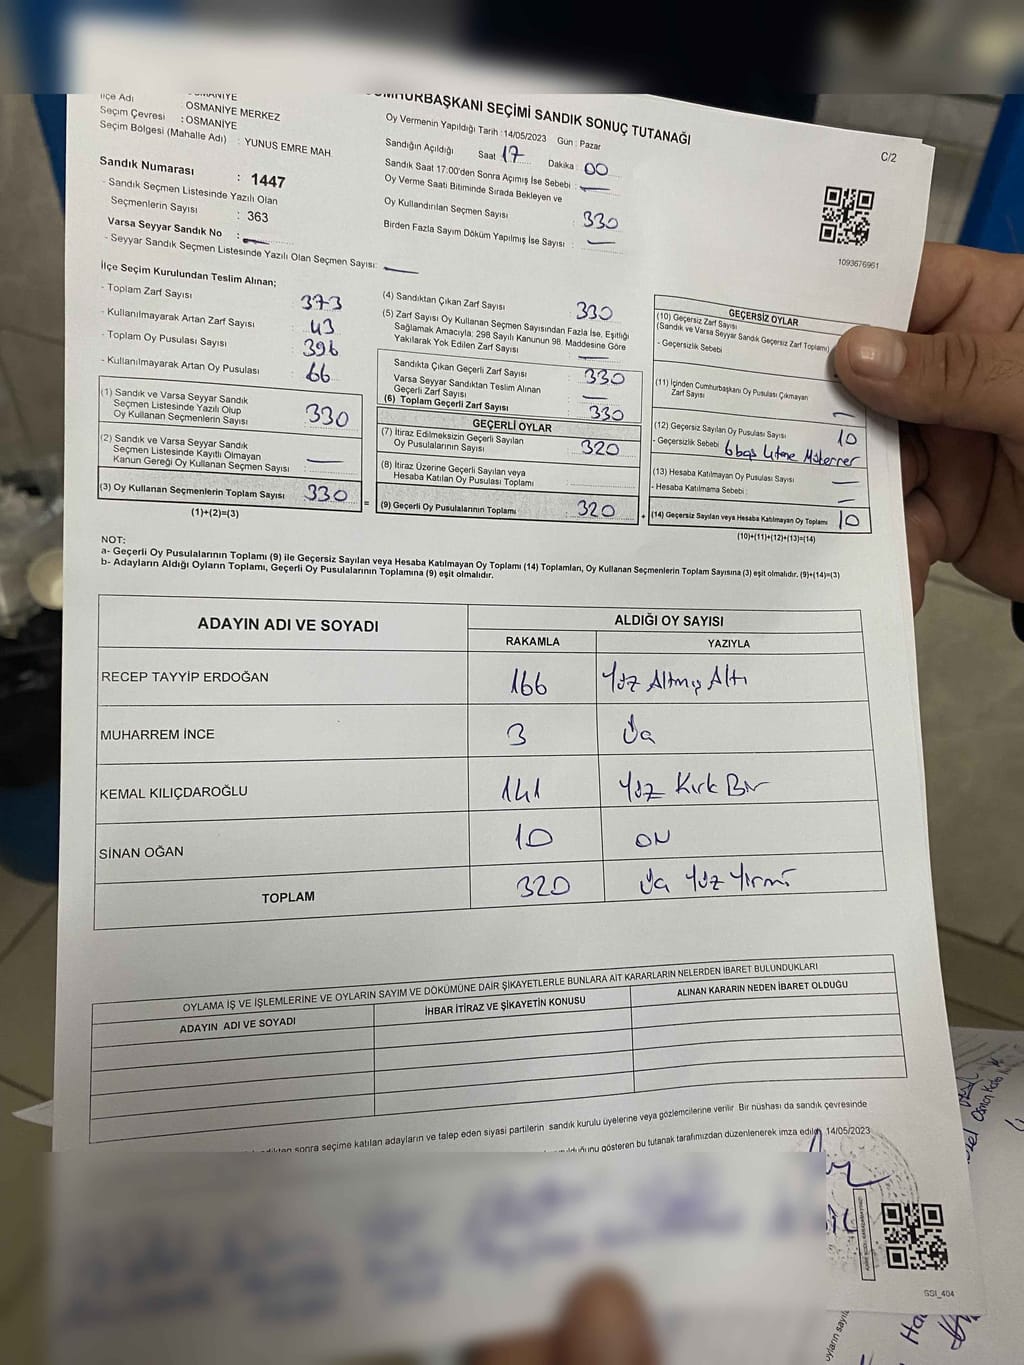 OSMANİYE
CUMHURBAŞKANI SEÇİMİ SANDIK SONUÇ TUTANAĞI
İlçe Adı : OSMANİYE MERKEZ
Seçim Çevresi : OSMANİYE
Seçim Bölgesi (Mahalle Adı) : YUNUS EMRE MAH
Oy Vermenin Yapıldığı Tarih : 14/05/2023 Gün : Pazar
C/2
Sandığın Açıldığı Saat 17 Dakika 00
Sandık Saat 17:00'den Sonra Açımış İse Sebebi : —
Oy Verme Saati Bitiminde Sırada Bekleyen ve
Oy Kullandırılan Seçmen Sayısı : 330
Birden Fazla Sayım Döküm Yapılmış İse Sayısı : —
1093676961
Sandık Numarası : 1447
- Sandık Seçmen Listesinde Yazılı Olan
Seçmenlerin Sayısı : 363
Varsa Seyyar Sandık No : —
- Seyyar Sandık Seçmen Listesinde Yazılı Olan Seçmen Sayısı: —
İlçe Seçim Kurulundan Teslim Alınan;
- Toplam Zarf Sayısı 373
- Kullanılmayarak Artan Zarf Sayısı 43
- Toplam Oy Pusulası Sayısı 396
- Kullanılmayarak Artan Oy Pusulası 66
(1) Sandık ve Varsa Seyyar Sandık
Seçmen Listesinde Yazılı Olup
Oy Kullanan Seçmenlerin Sayısı 330
(2) Sandık ve Varsa Seyyar Sandık
Seçmen Listesinde Kayıtlı Olmayan
Kanun Gereği Oy Kullanan Seçmen Sayısı —
(3) Oy Kullanan Seçmenlerin Toplam Sayısı 330 =
(1)+(2)=(3)
(4) Sandıktan Çıkan Zarf Sayısı 330
(5) Zarf Sayısı Oy Kullanan Seçmen Sayısından Fazla İse, Eşitliği
Sağlamak Amacıyla; 298 Sayılı Kanunun 98. Maddesine Göre
Yakılarak Yok Edilen Zarf Sayısı —
Sandıkta Çıkan Geçerli Zarf Sayısı 330
Varsa Seyyar Sandıktan Teslim Alınan
Geçerli Zarf Sayısı —
(6) Toplam Geçerli Zarf Sayısı 330
GEÇERLİ OYLAR
(7) İtiraz Edilmeksizin Geçerli Sayılan
Oy Pusulalarının Sayısı 320
(8) İtiraz Üzerine Geçerli Sayılan veya
Hesaba Katılan Oy Pusulası Toplamı
(9) Geçerli Oy Pusulalarının Toplamı 320 +
GEÇERSİZ OYLAR
(10) Geçersiz Zarf Sayısı
(Sandık ve Varsa Seyyar Sandık Geçersiz Zarf Toplamı)
- Geçersizlik Sebebi
(11) İçinden Cumhurbaşkanı Oy Pusulası Çıkmayan
Zarf Sayısı —
(12) Geçersiz Sayılan Oy Pusulası Sayısı 10
- Geçersizlik Sebebi
(13) Hesaba Katılmayan Oy Pusulası Sayısı —
- Hesaba Katılmama Sebebi : —
(14) Geçersiz Sayılan veya Hesaba Katılmayan Oy Toplamı 10
(10)+(11)+(12)+(13)=(14)
NOT:
a- Geçerli Oy Pusulalarının Toplamı (9) ile Geçersiz Sayılan veya Hesaba Katılmayan Oy Toplamı (14) Toplamları, Oy Kullanan Seçmenlerin Toplam Sayısına (3) eşit olmalıdır. (9)+(14)=(3)
b- Adayların Aldığı Oyların Toplamı, Geçerli Oy Pusulalarının Toplamına (9) eşit olmalıdır.
ADAYIN ADI VE SOYADI ALDIĞI OY SAYISI
RAKAMLA YAZIYLA
RECEP TAYYİP ERDOĞAN 166 Yüz Altmış Altı
MUHARREM İNCE 3 Üç
KEMAL KILIÇDAROĞLU 141 Yüz Kırk Bir
SİNAN OĞAN 10 ON
TOPLAM 320 Üç Yüz Yirmi
OYLAMA İŞ VE İŞLEMLERİNE VE OYLARIN SAYIM VE DÖKÜMÜNE DAİR ŞİKAYETLERLE BUNLARA AİT KARARLARIN NELERDEN İBARET BULUNDUKLARI
ADAYIN ADI VE SOYADI İHBAR İTİRAZ VE ŞİKAYETİN KONUSU ALINAN KARARIN NEDEN İBARET OLDUĞU
sonra seçime katılan adayların ve talep eden siyasi partilerin sandık kurulu üyelerine veya gözlemcilerine verilir. Bir nüshası da sandık çevresinde
gösteren bu tutanak tarafımızdan düzenlenerek imza edildi. 14/05/2023
SSI_404